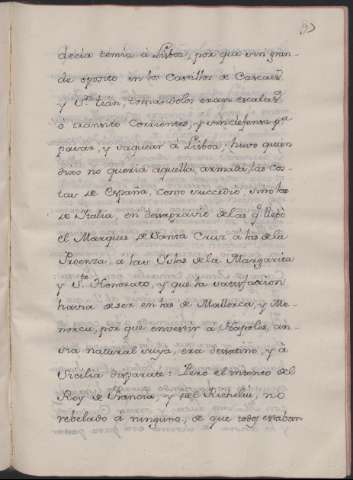 93
decia temia á Lisboa, por que sin gran-
de oposito en los Castillos de Cascaes
y Sn. Gian, tomandolos eran escalas
ó transito corrientes, y sin defensa pa
pasar, y saquear á Lisboa; hubo quien
dixo no queria aquella armada las cos-
tas de España, como succedió, sino las
de Italia, en desagravio de las q. llevó
el Marques de Santa Cruz á las de la
Proenza, á las Yslas de la Margarita
y S.to Honorato, y que la satisfacion
havia de ser en las de Mallorca, y Me-
norca, por que envestir á Napoles, an-
sia natural suya, era desatino, y á
Sicilia disparate: Pero el intento del
Rey de Francia, y del Richelieu, no
rebelado á ninguno, de que todos estaban